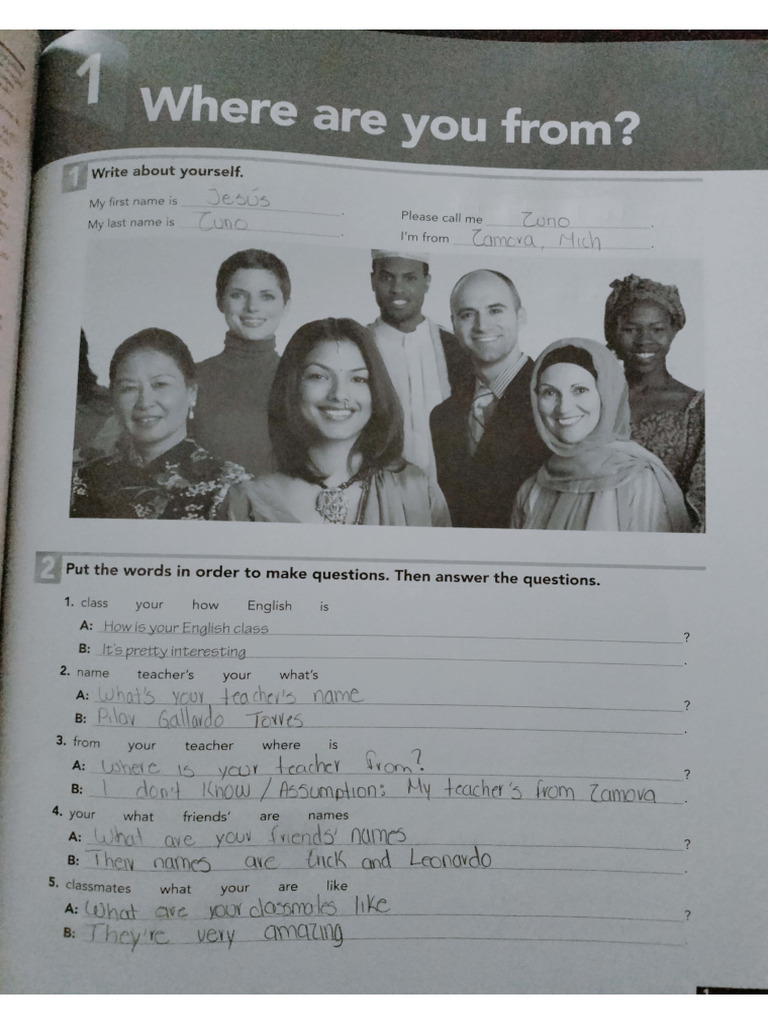 1 Where are you from?
1 Write about yourself.
My first name is Jesús.
My last name is Zuno.
Please call me Zuno.
I'm from Zamora, Mich.
2 Put the words in order to make questions. Then answer the questions.
1. class your how English is
A: How is your English class?
B: It's pretty interesting.
2. name teacher's your what's
A: What's your teacher's name?
B: Pilar Gallardo Torres.
3. from your teacher where is
A: Where is your teacher from??
B: I don't know / Assumption: My teacher's from Zamora.
4. your what friends' are names
A: What are your friends' names?
B: Their names are Erick and Leonardo
5. classmates what your are like
A: What are your classmates like?
B: They're very amazing.
1